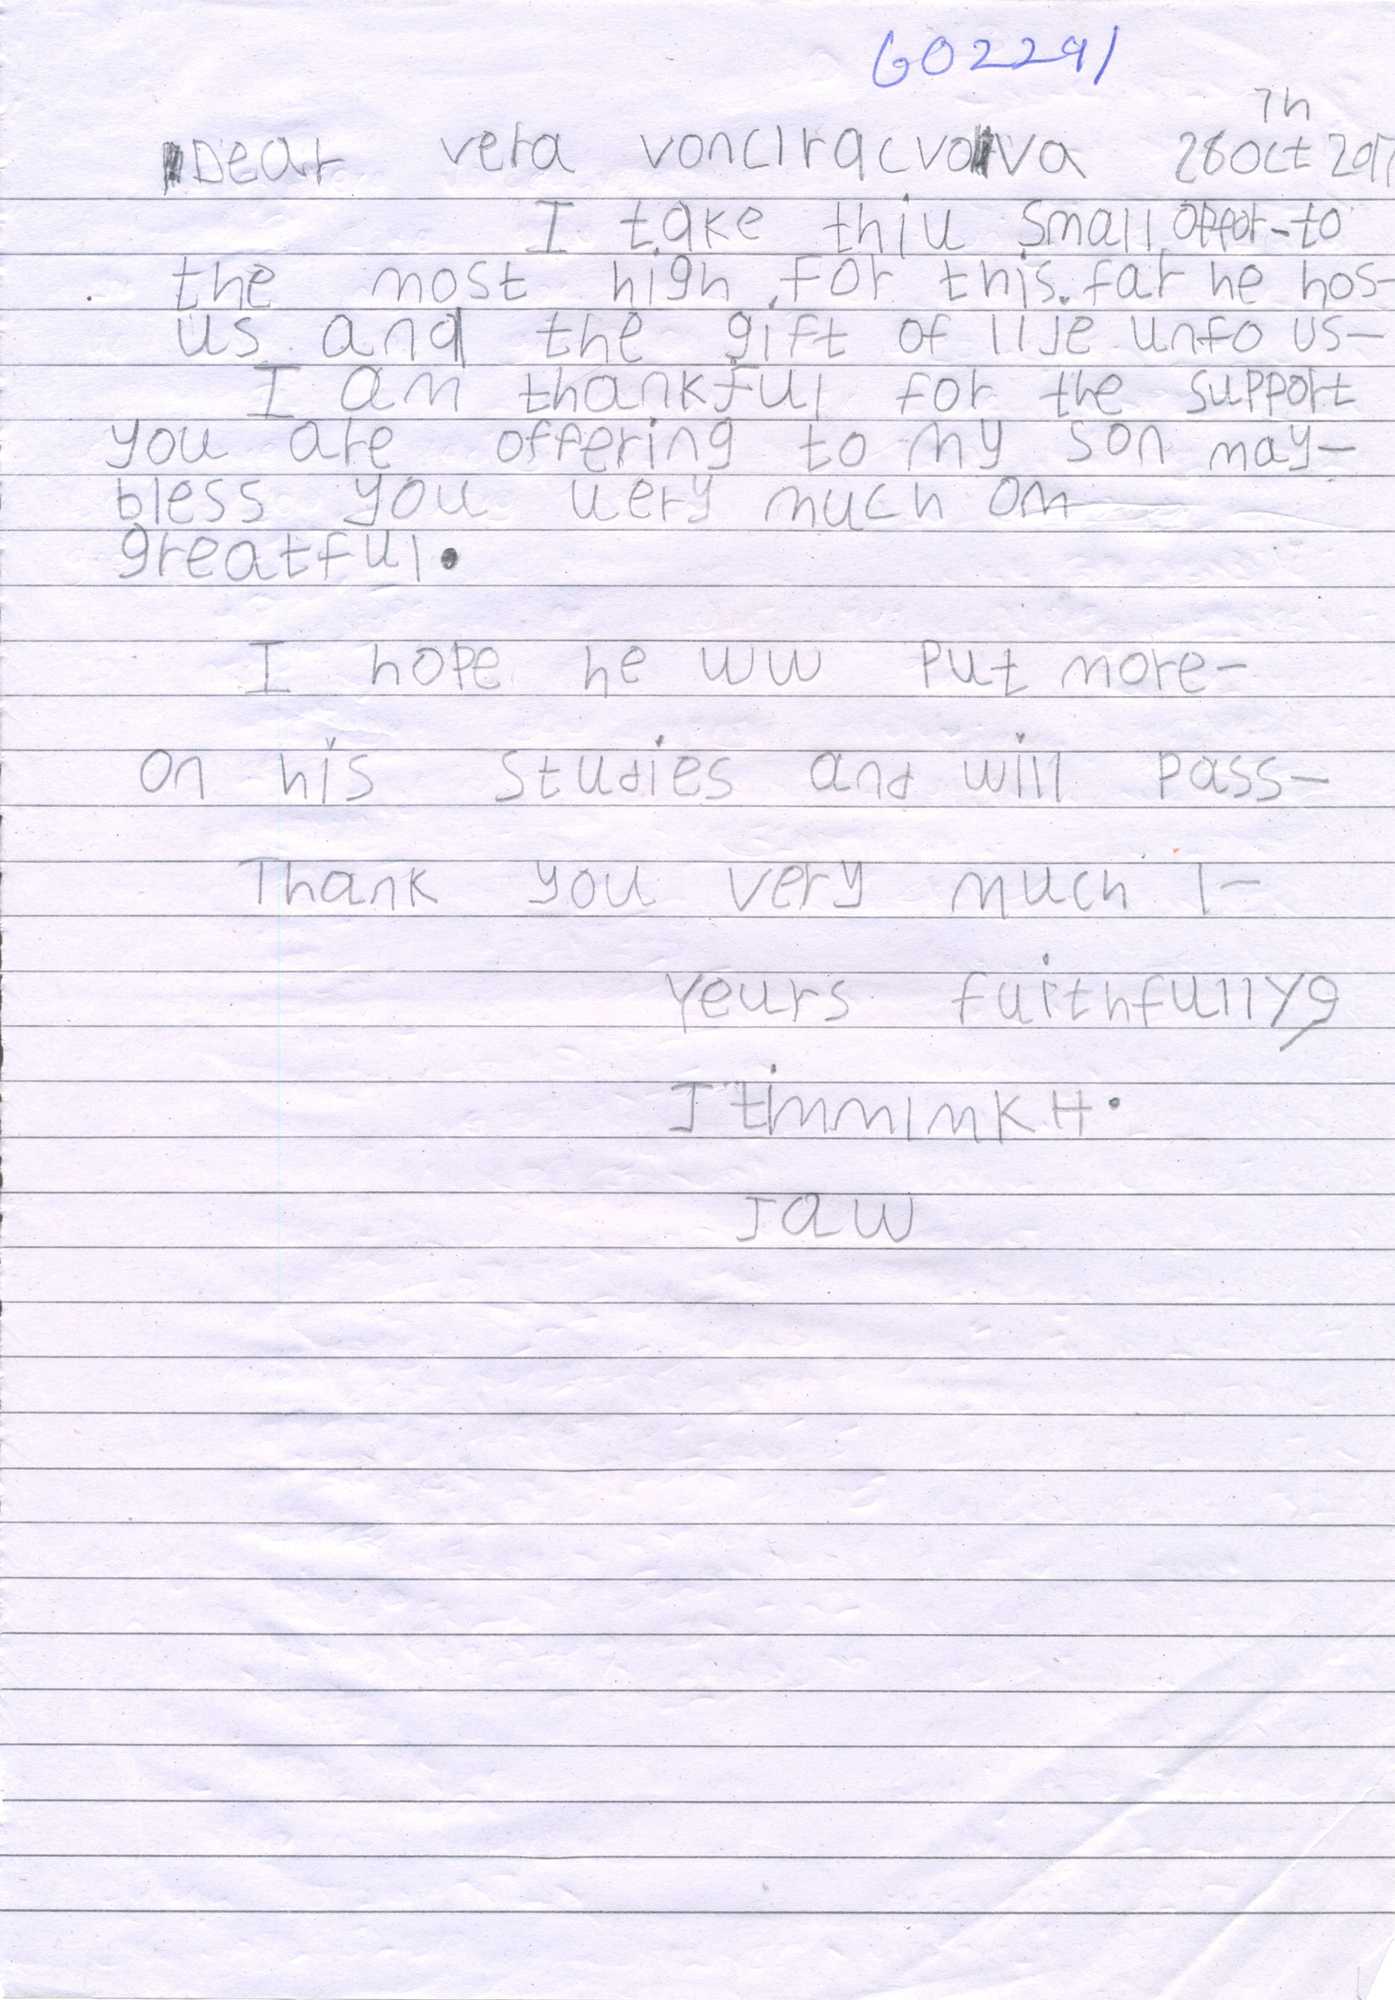 GO2291
Th
Dear vera vonclracvova 28 Oct 2017
I take thiu small oppor-to
the most high for this. far he hos-
us and the gift of lije unfo us-
I am thankful for the support
you are offering to my son may-
bless you uery much om
greatful.
I hope he ww put more-
on his studies and will pass-
Thank you very much I-
Yeurs fuithfully,
JtimnimKH.
Jaw